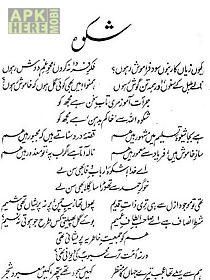 APK
HERE
MOBI
شکوہ
کیوں زیاں کار بنوں سود فراموش رہوں؟ فکرِ فردا نہ کروں محوِ غمِ دوش رہوں
نالے بلبل کے سنوں اور ہمہ تن گوش رہوں ہمنوا میں بھی کوئی گل ہوں کہ خاموش رہوں
جرأت آموز مری تابِ سخن ہے مجھ کو
شکوہ اللہ سے خاکم بدہن ہے مجھ کو
ہے بجا شیوۂ تسلیم میں مشہور ہیں ہم قصۂ درد سناتے ہیں کہ مجبور ہیں ہم
سازِ خاموش ہیں فریاد سے معمور ہیں ہم نالہ آتا ہے اگر لب پہ تو معذور ہیں ہم
اے خدا! شکوۂ اربابِ وفا بھی سن لے
خوگرِ حمد سے تھوڑا سا گلہ بھی سن لے
تھی تو موجود ازل سے ہی تری ذاتِ قدیم پھول تھا زیبِ چمن پر نہ پریشاں تھی شمیم
شرطِ انصاف ہے اے صاحبِ الطافِ عمیم بوئے گل پھیلتی کس طرح جو ہوتی نہ نسیم
ہم کو جمعیتِ خاطر یہ پریشانی تھی
ورنہ امت ترے محبوب کی دیوانی تھی
ہم سے پہلے تھا عجب تیرے جہاں کا منظر کہیں مسجود تھے پتھر کہیں معبود شجر